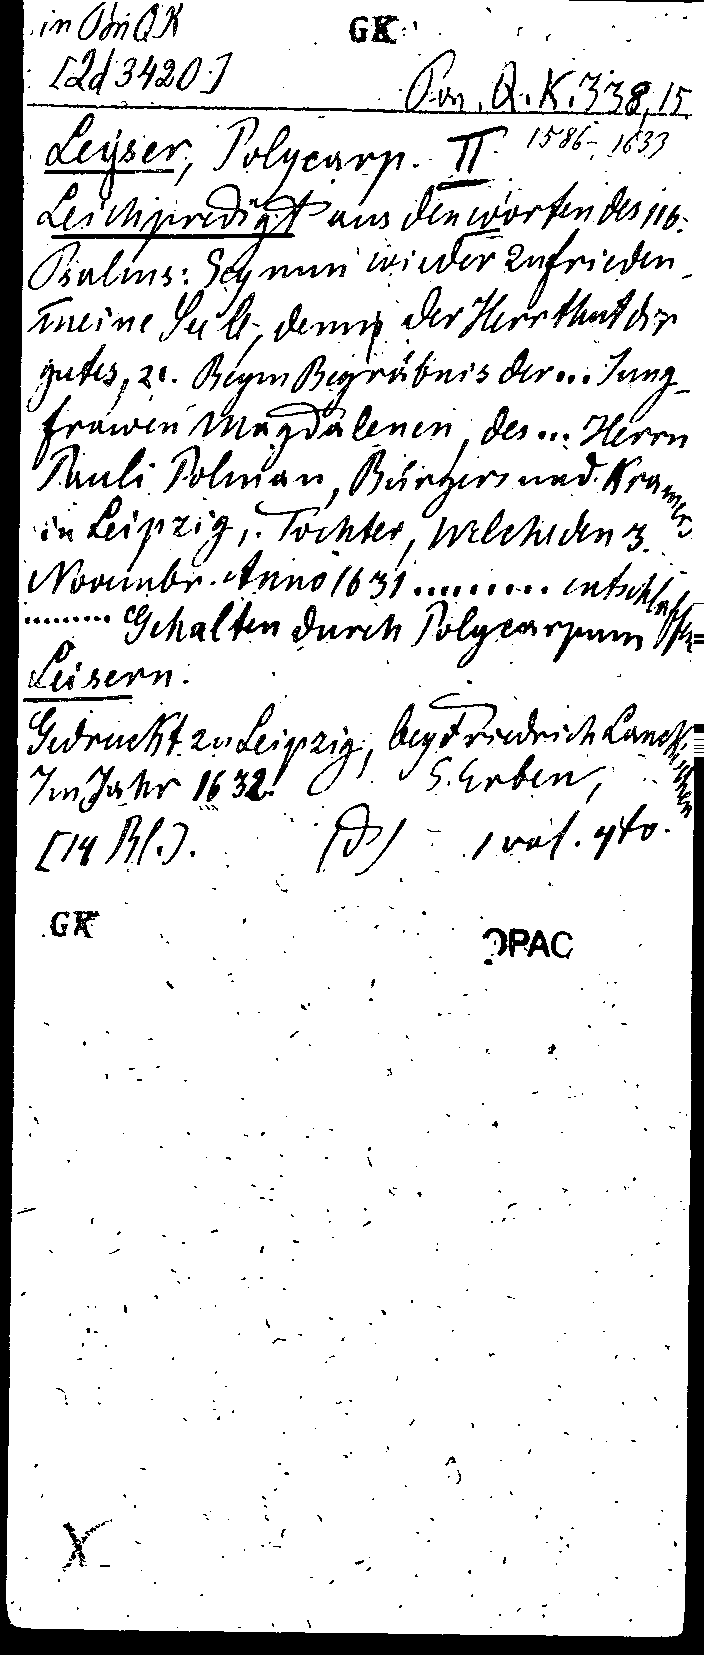 in Pon QK
GK
[2d 3420.]
Pon. Q. K. 338, 15
Leyser, Polycarp. II. 1586-1633
Leichpredigt aus den worten des 116.
Psalms: Sey nun wieder zufrieden
meine Seele, denn der Herr thut dir
gutes, 2c. Beym Begräbnis der... Jung-
frawen Magdalenen, des... Herrn
Pauli Polman, Bürgers und Kramers
in Leipzig, Tochter, welche den 3.
Novembr. Anno 1631 .......... entschlaffen
........ Gehalten durch Polycarpum
Leisern.
Gedruckt zu Leipzig, bey Friedrich Lanckischen
Im Jahr 1632. S. Erben,
[14 Bl.]. (d) 1 vol. 4to.
GK
OPAC
X